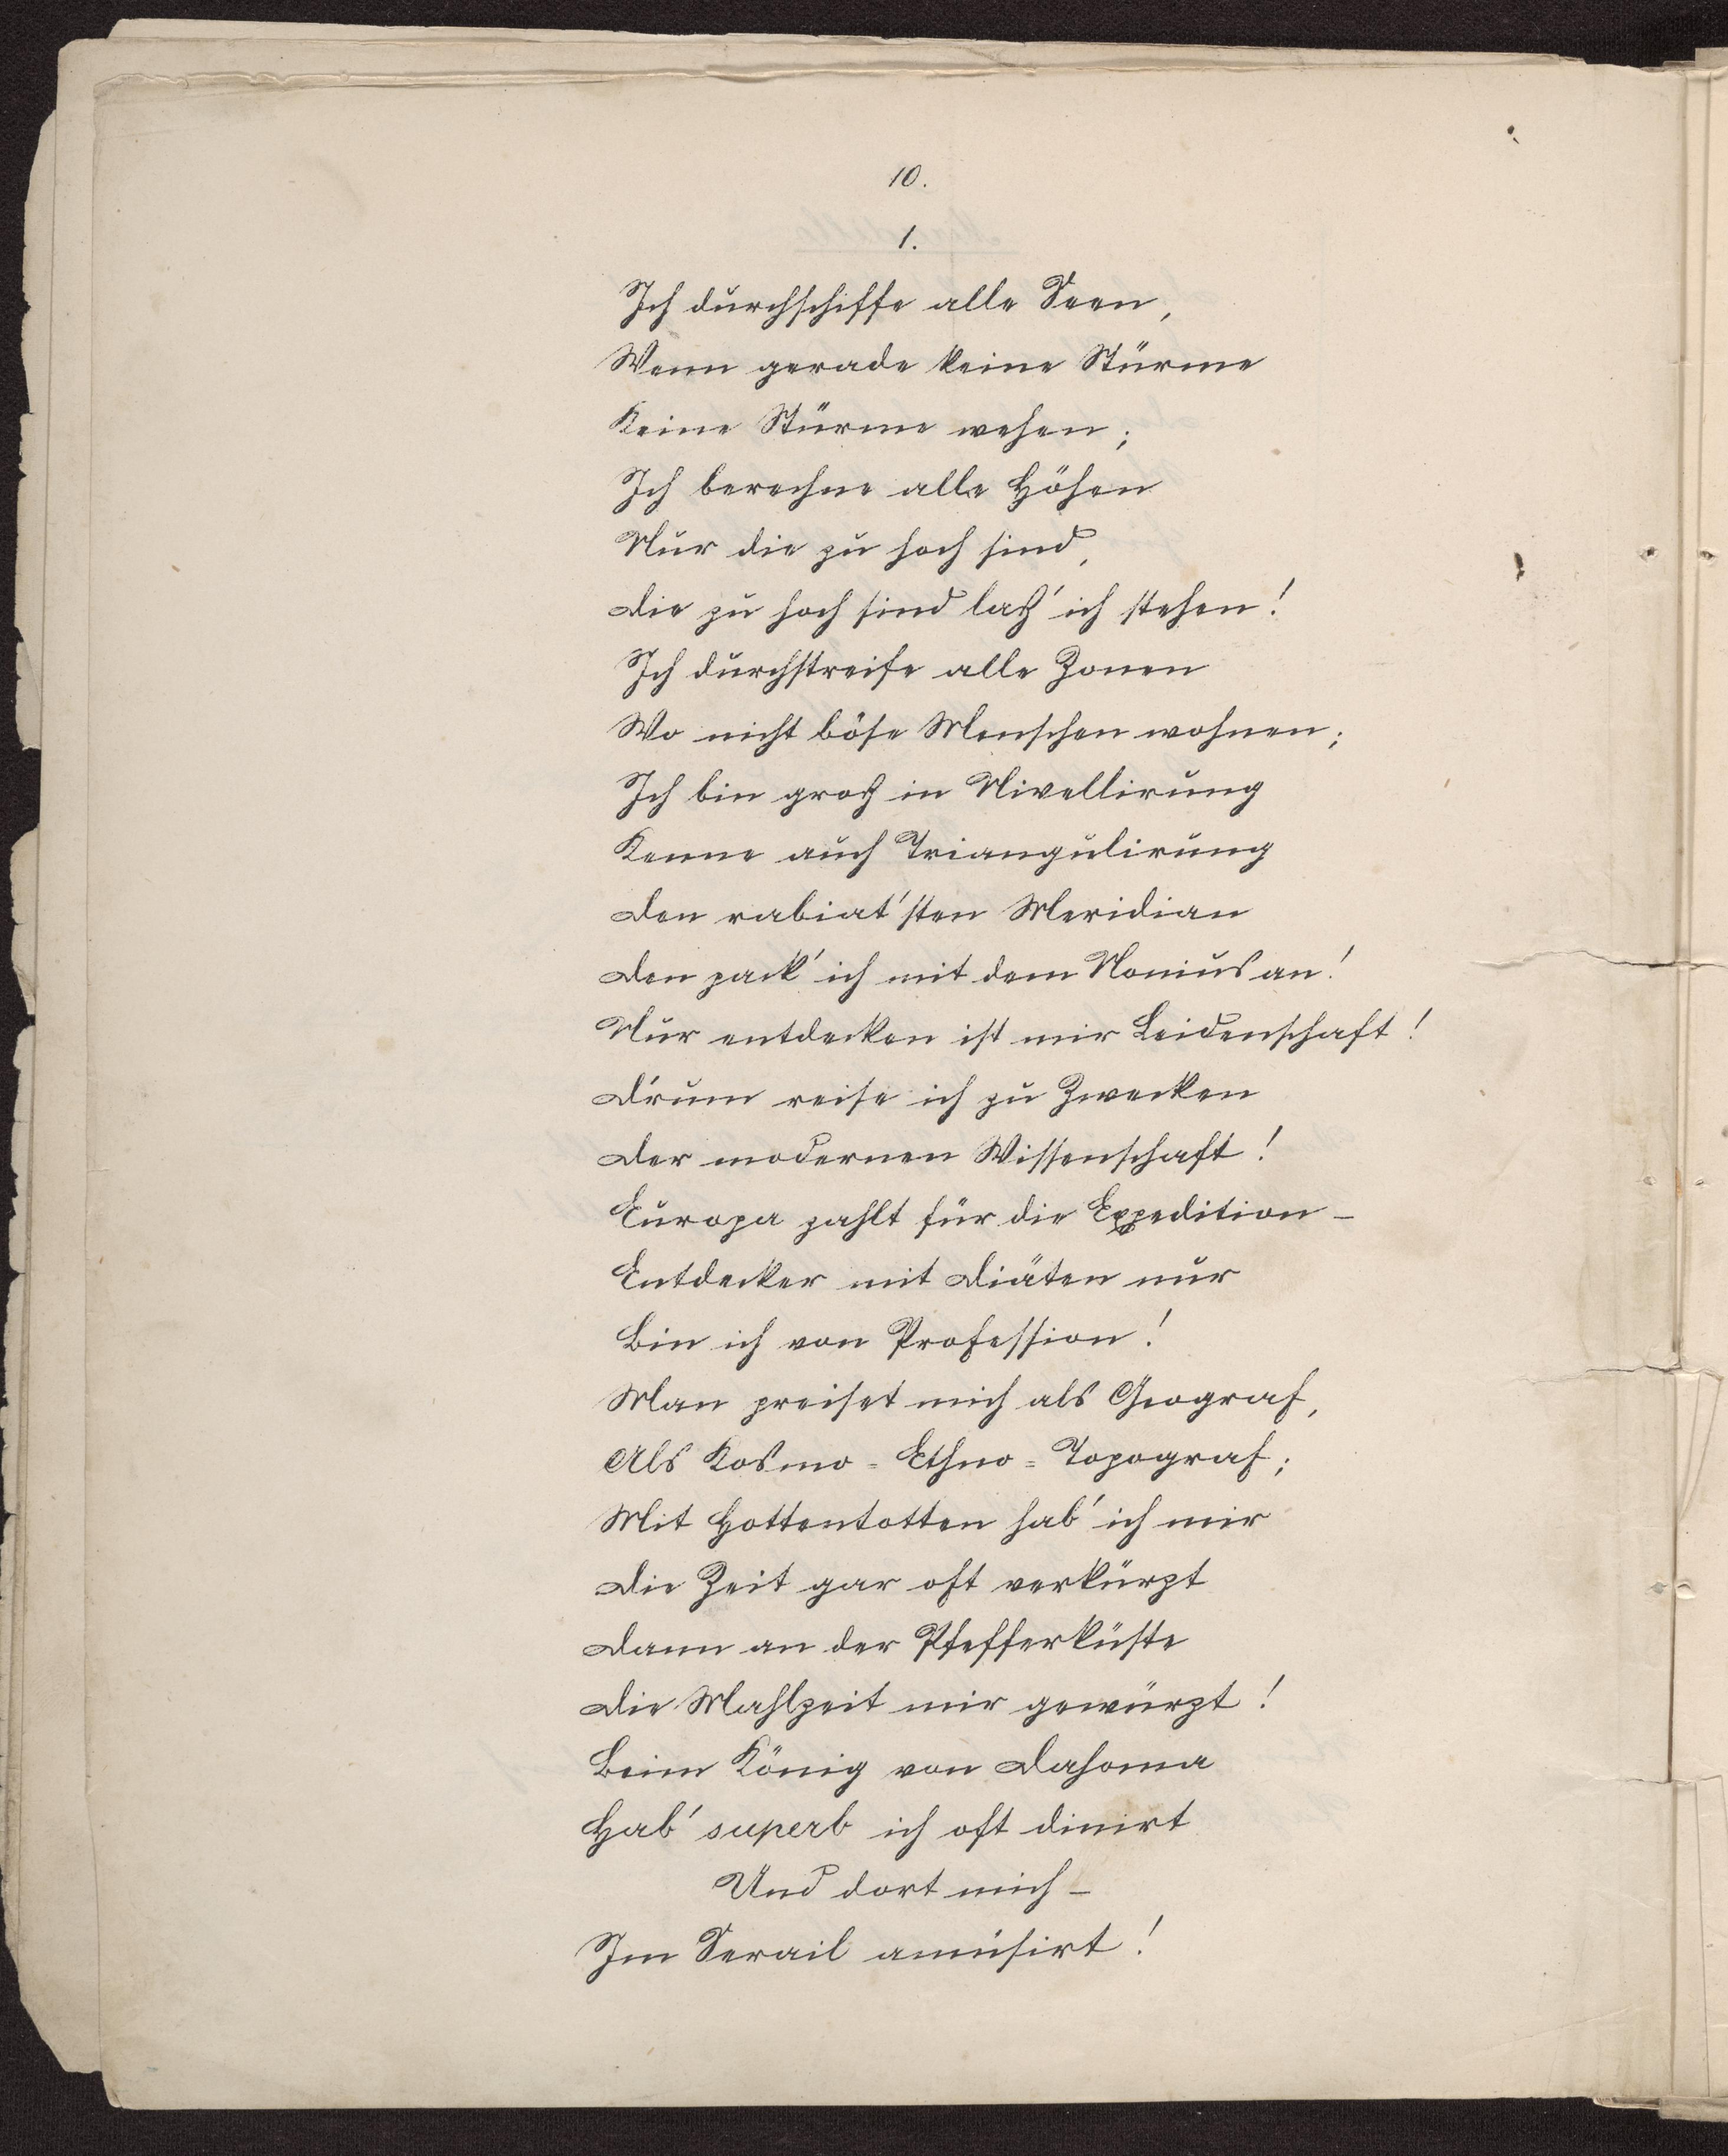 10.
1.
Ich durchschiffe alle Seen,
Wenn gerade keine Stürme
Keine Stürme wehen;
Ich berechne alle Höhen
Nur die zu hoch sind,
Die zu hoch sind laß' ich stehen!
Ich durchstreife alle Zonen
Wo nicht böse Menschen wohnen;
Ich bin groß in Nivellirung
Kenne auch Triangulirung
Den rabiat'sten Meridian
Den pack' ich mit dem Nonius an!
Nur entdecken ist mir Leidenschaft!
D'rum reise ich zu Zwecken
Der modernen Wissenschaft!
Europa zahlt für die Expedition –
Entdecker mit Diäten nur
Bin ich von Profession!
Man preiset mich als Geograf,
Als Kosmo-Ethno-Topograf;
Mit Hottentotten hab' ich mir
Die Zeit gar oft verkürzt
Dann an der Pfefferküste
Die Mahlzeit mir gewürzt!
Beim König von Dahoma
Hab' superb ich oft dinirt
Und dort mich –
Im Serail amüsirt!